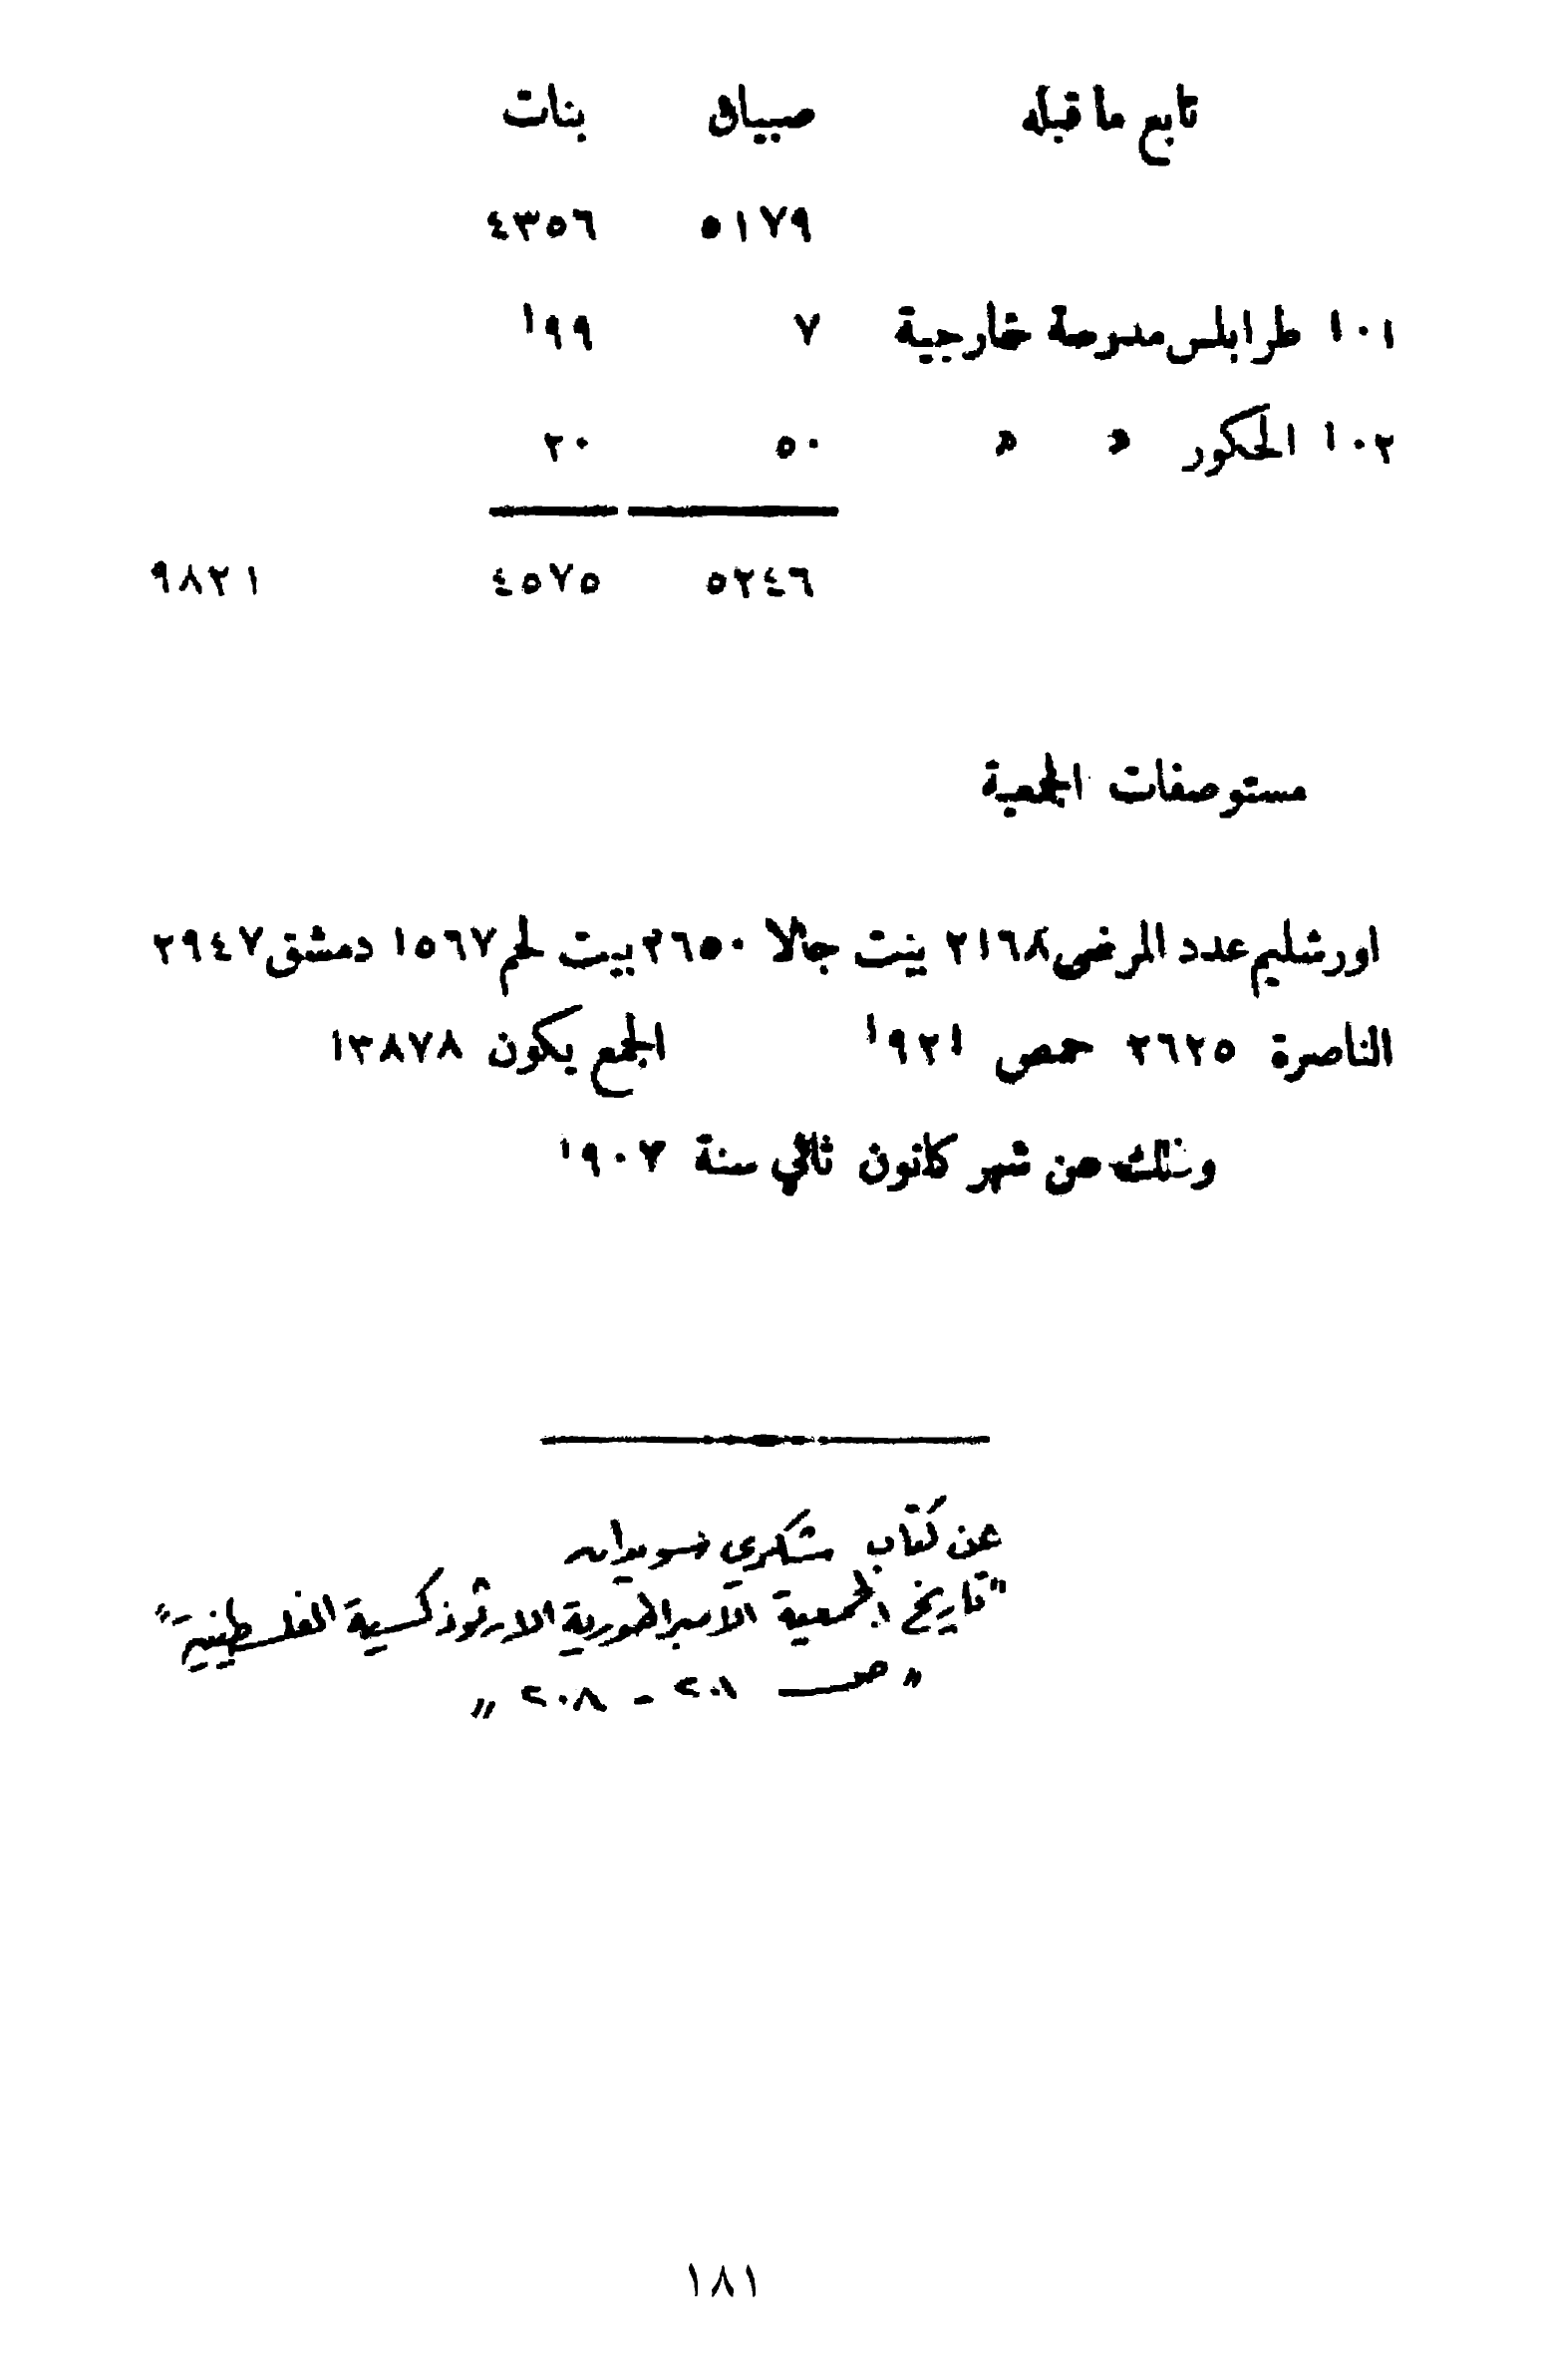 تابع ما قبله صبيان بنات
٥١٧٩ ٤٣٥٦
١٠١ طرابلس مدرسة خارجية ٧ ١٩٩
١٠٢ الحكور » » ٥٠ ٢٠
٥٢٤٦ ٤٥٧٥ ٩٨٢١
مستوصفات الجمعية
اورشليم عدد المرضى ٢١٦٨ بيت جالا ٢٦٥٠ بيت لحم ١٥٦٧ دمشق ٢٩٤٧
الناصرة ٢٦٢٥ حمص ١٩٢١ الجمع يكون ١٣٨٧٨
وذلك عن شهر كانون ثاني سنة ١٩٠٧
عن كتاب شكري سويدان
"تاريخ الجمعية الامبراطورية الارثوذكسية الفلسطينية"
" صـ ٢٠١ - ٢٠٨ "
١٨١